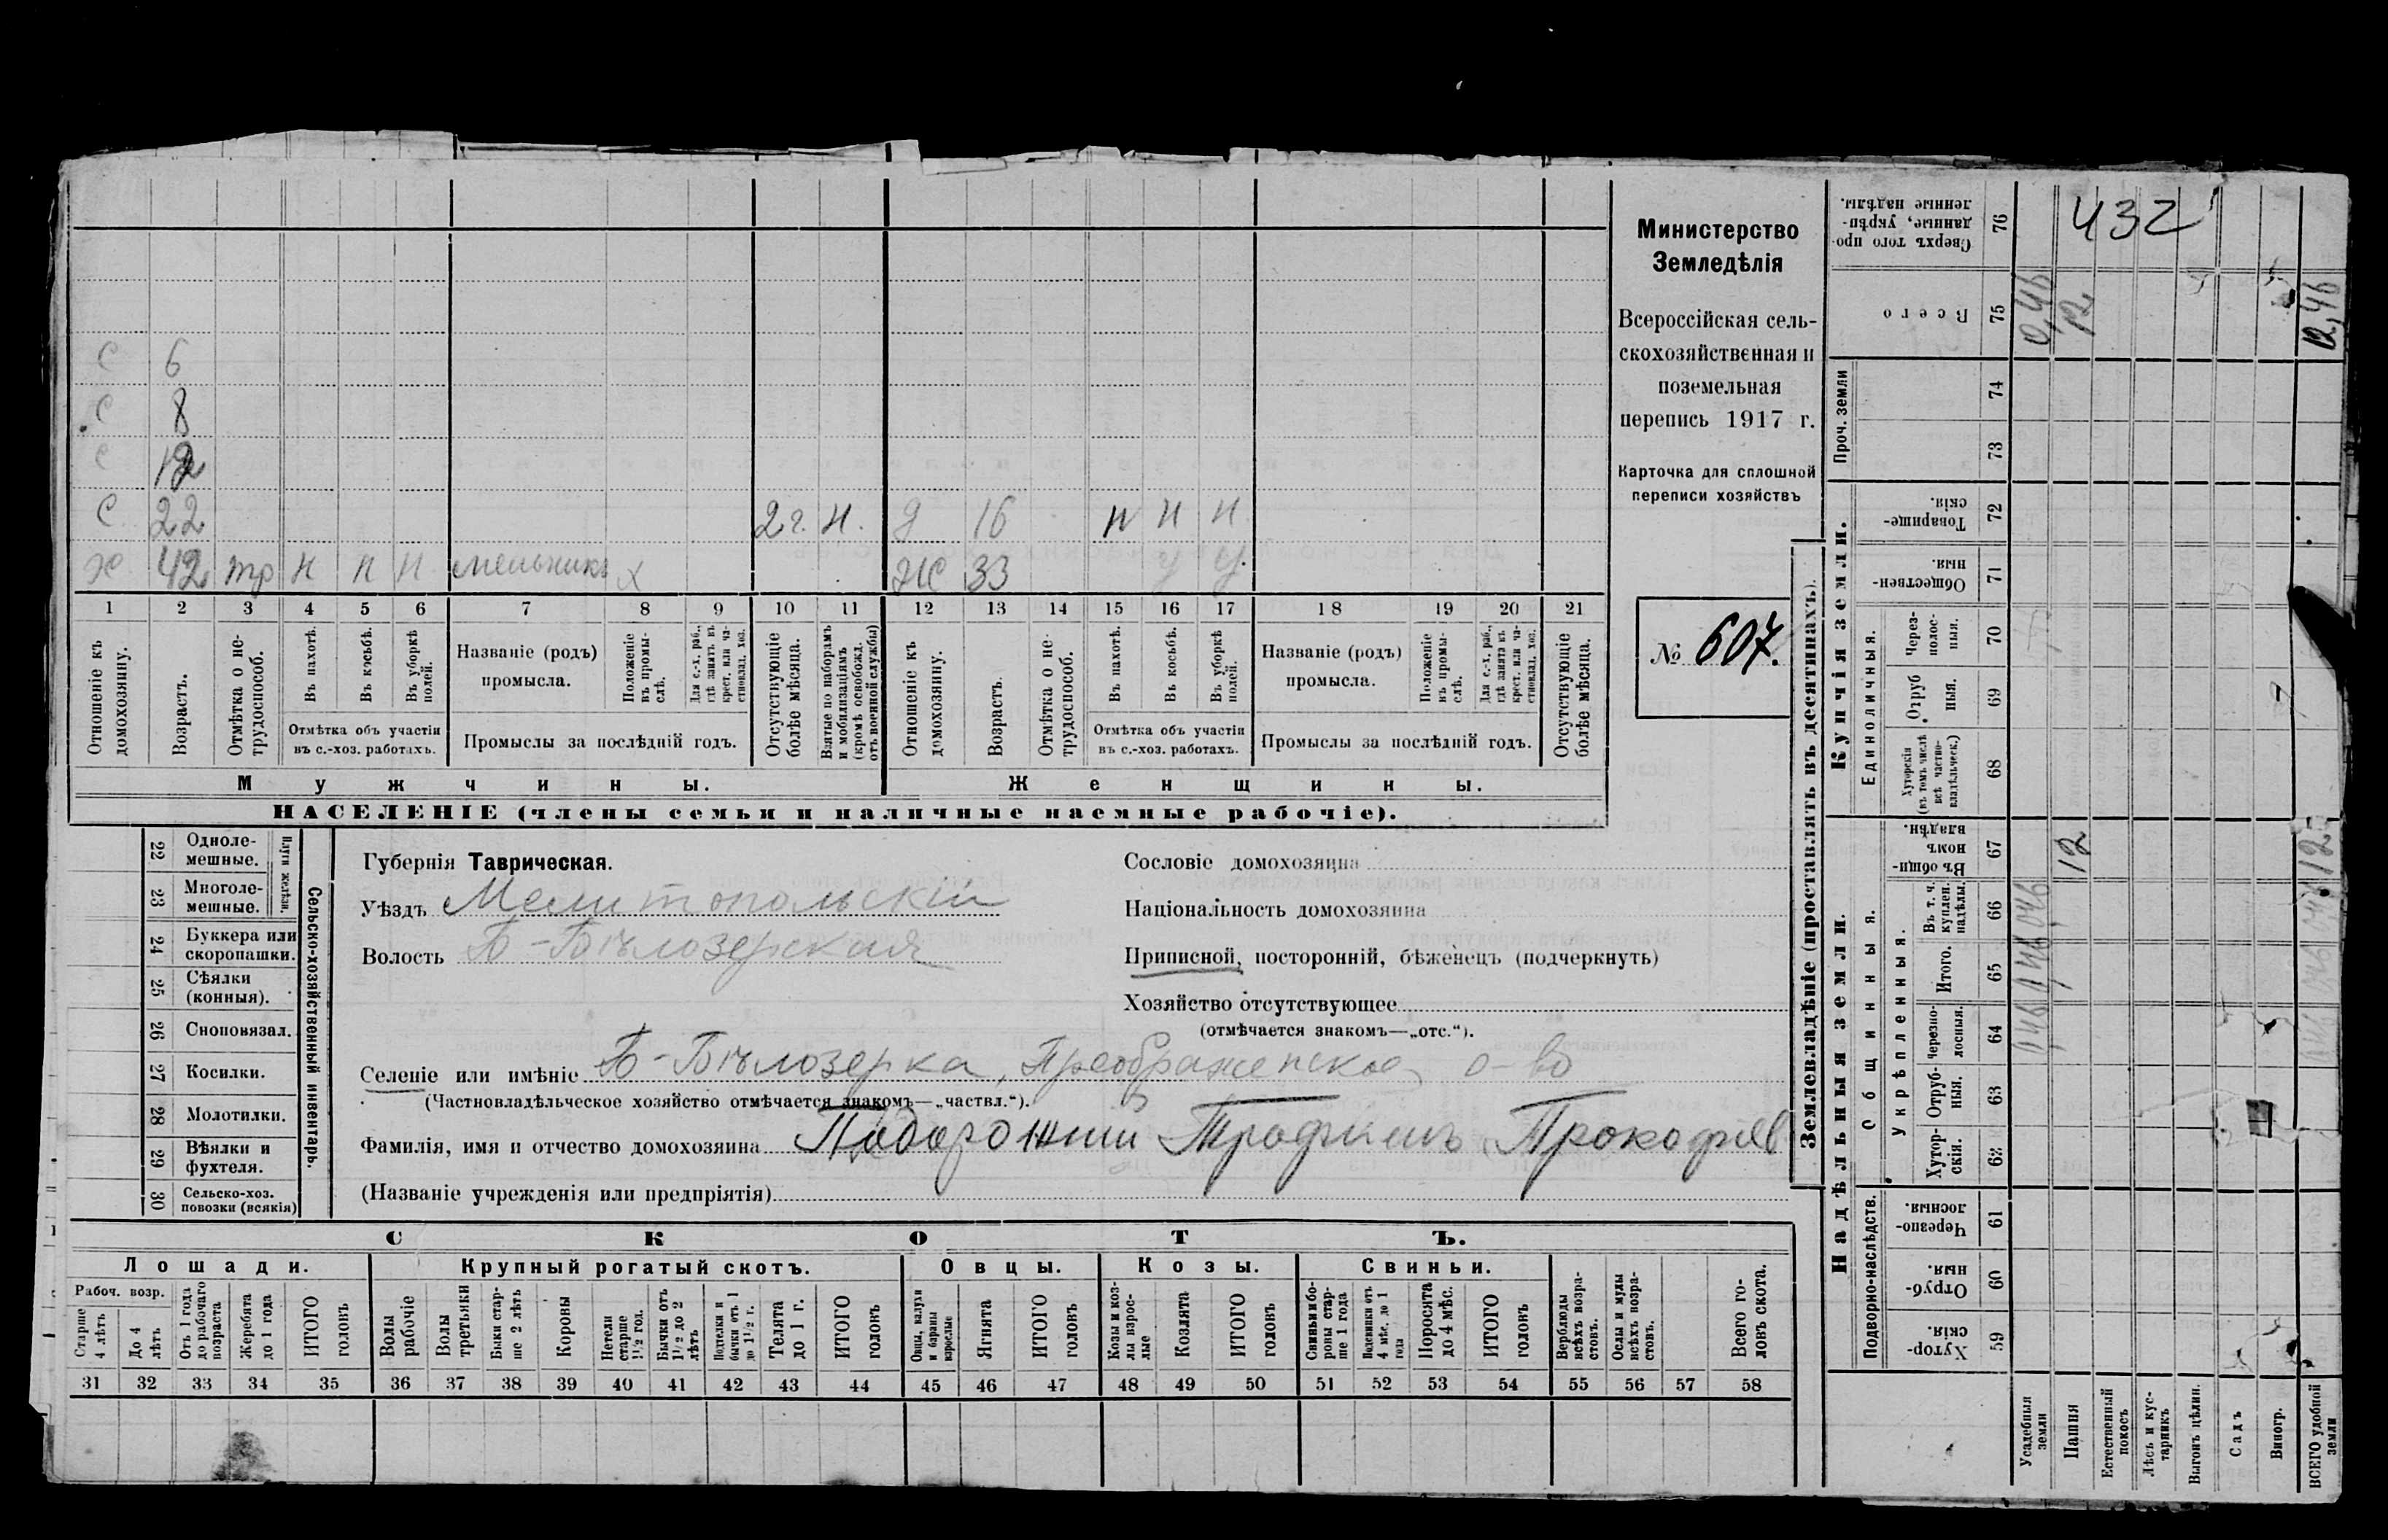 С 6
С 8
С 12
С 22 2 г. Н. Д 16 П Н Н
Х 42 тр Н П Н мельникъ Х Ж 33 У У
1 2 3 4 5 6 7 8 9 10 11 12 13 14 15 16 17 18 19 20 21
Отношеніе къ домохозяину.
Возрастъ.
Отмѣтка о не-
трудоспособ.
Въ пахотѣ.
Въ косьбѣ.
Въ уборкѣ
полей.
Отмѣтка объ участіи
въ с.-хоз. работахъ.
Названіе (родъ)
промысла.
Положеніе
въ промы-
слѣ.
Для с.-х. раб.,
гдѣ занятъ въ
крест. или ча-
стновлад. хоз.
Промыслы за послѣдній годъ.
Отсутствующіе
болѣе мѣсяца.
Взятые по наборамъ
и мобилизаціямъ
(кромѣ освобожд.
отъ военной службы)
Отношеніе къ
домохозяину.
Возрастъ.
Отмѣтка о не-
трудоспособ.
Въ пахотѣ.
Въ косьбѣ.
Въ уборкѣ
полей.
Отмѣтка объ участіи
въ с.-хоз. работахъ.
Названіе (родъ)
промысла.
Положеніе
въ промы-
слѣ.
Для с.-х. раб.,
гдѣ занята въ
крест. или ча-
стновлад. хоз.
Промыслы за послѣдній годъ.
Отсутствующіе
болѣе мѣсяца.
Мужчины.
Женщины.
НАСЕЛЕНІЕ (члены семьи и наличные наемные рабочіе).
Министерство
Земледѣлія
Всероссійская сель-
скохозяйственная и
поземельная
перепись 1917 г.
Карточка для сплошной
переписи хозяйствъ
№ 607.
22 Одноле-
мешные.
23 Многоле-
мешные.
Плуги желѣзн.
24 Буккера или
скоропашки.
25 Сѣялки
(конныя).
26 Сноповязал.
27 Косилки.
28 Молотилки.
29 Вѣялки и
фухтеля.
30 Сельско-хоз.
повозки (всякія)
Сельско-хозяйственный инвентарь.
Губернія Таврическая.
Уѣздъ Мелитопольскій
Волость Б-Бѣлозерская
Сословіе домохозяина
Національность домохозяина
Приписной, посторонній, бѣженецъ (подчеркнуть)
Хозяйство отсутствующее
(отмѣчается знакомъ—„отс.“).
Селеніе или имѣніе Б-Бѣлозерка, Преображенское о-во
(Частновладѣльческое хозяйство отмѣчается знакомъ—„частвл.“).
Фамилія, имя и отчество домохозяина Подорожній Трофимъ Прокофіев
(Названіе учрежденія или предпріятія)
СКОТЪ.
Лошади. Крупный рогатый скотъ. Овцы. Козы. Свиньи.
Рабоч. возр.
Старше
4 лѣтъ
До 4
лѣтъ
Отъ 1 года
до рабочаго
возраста
Жеребята
до 1 года
ИТОГО
головъ
Волы
рабочіе
Волы
третьяки
Быки стар-
ше 2 лѣтъ
Коровы
Нетели
старше
1½ год.
Бычки отъ
1½ до 2
лѣтъ
Подтелки и
бычки отъ 1
до 1½ г.
Телята
до 1 г.
ИТОГО
головъ
Овцы, валухи
и бараны
взрослые
Ягнята
ИТОГО
головъ
Козы и коз-
лы взрос-
лые
Козлята
ИТОГО
головъ
Свиньи и бо-
ровы стар-
ше 1 года
Подсвинки отъ
4 мѣс. до 1
года
Поросята
до 4 мѣс.
ИТОГО
головъ
Верблюды
всѣхъ возра-
стовъ.
Ослы и мулы
всѣхъ возра-
стовъ.
Всего го-
ловъ скота.
31 32 33 34 35 36 37 38 39 40 41 42 43 44 45 46 47 48 49 50 51 52 53 54 55 56 57 58
Землевладѣніе (проставлять въ десятинахъ).
432
Сверхъ того про-
данные, укрѣп-
ленные надѣлы.
76
Всего 75 0,46 12 12,46
Проч. земли
74
73
Купчія земли.
Товарище-
скія.
72
Обществен-
ныя.
71
Единоличныя.
Через-
полос-
ныя.
70
Отруб
ныя.
69
Хуторскія
(въ томъ числѣ
всѣ частно-
владѣльческ.)
68
Надѣльныя земли.
Общинныя.
Въ общи-
номъ
владѣн.
67 12 12
Укрѣпленныя.
Въ т. ч.
куплен.
надѣлы.
66 046
Итого. 65 046
Черезпо-
лосныя.
64 046
Отруб-
ныя.
63
Хутор-
скія.
62
Подворно-наслѣдств.
Черезпо-
лосныя.
61
Отруб-
ныя.
60
Хутор-
скія.
59
Усадебныя
земли
Пашня
Естественный
покосъ
Лѣсъ и кус-
тарникъ
Выгонъ цѣлин.
Садъ
Виногр.
ВСЕГО удобной
земли